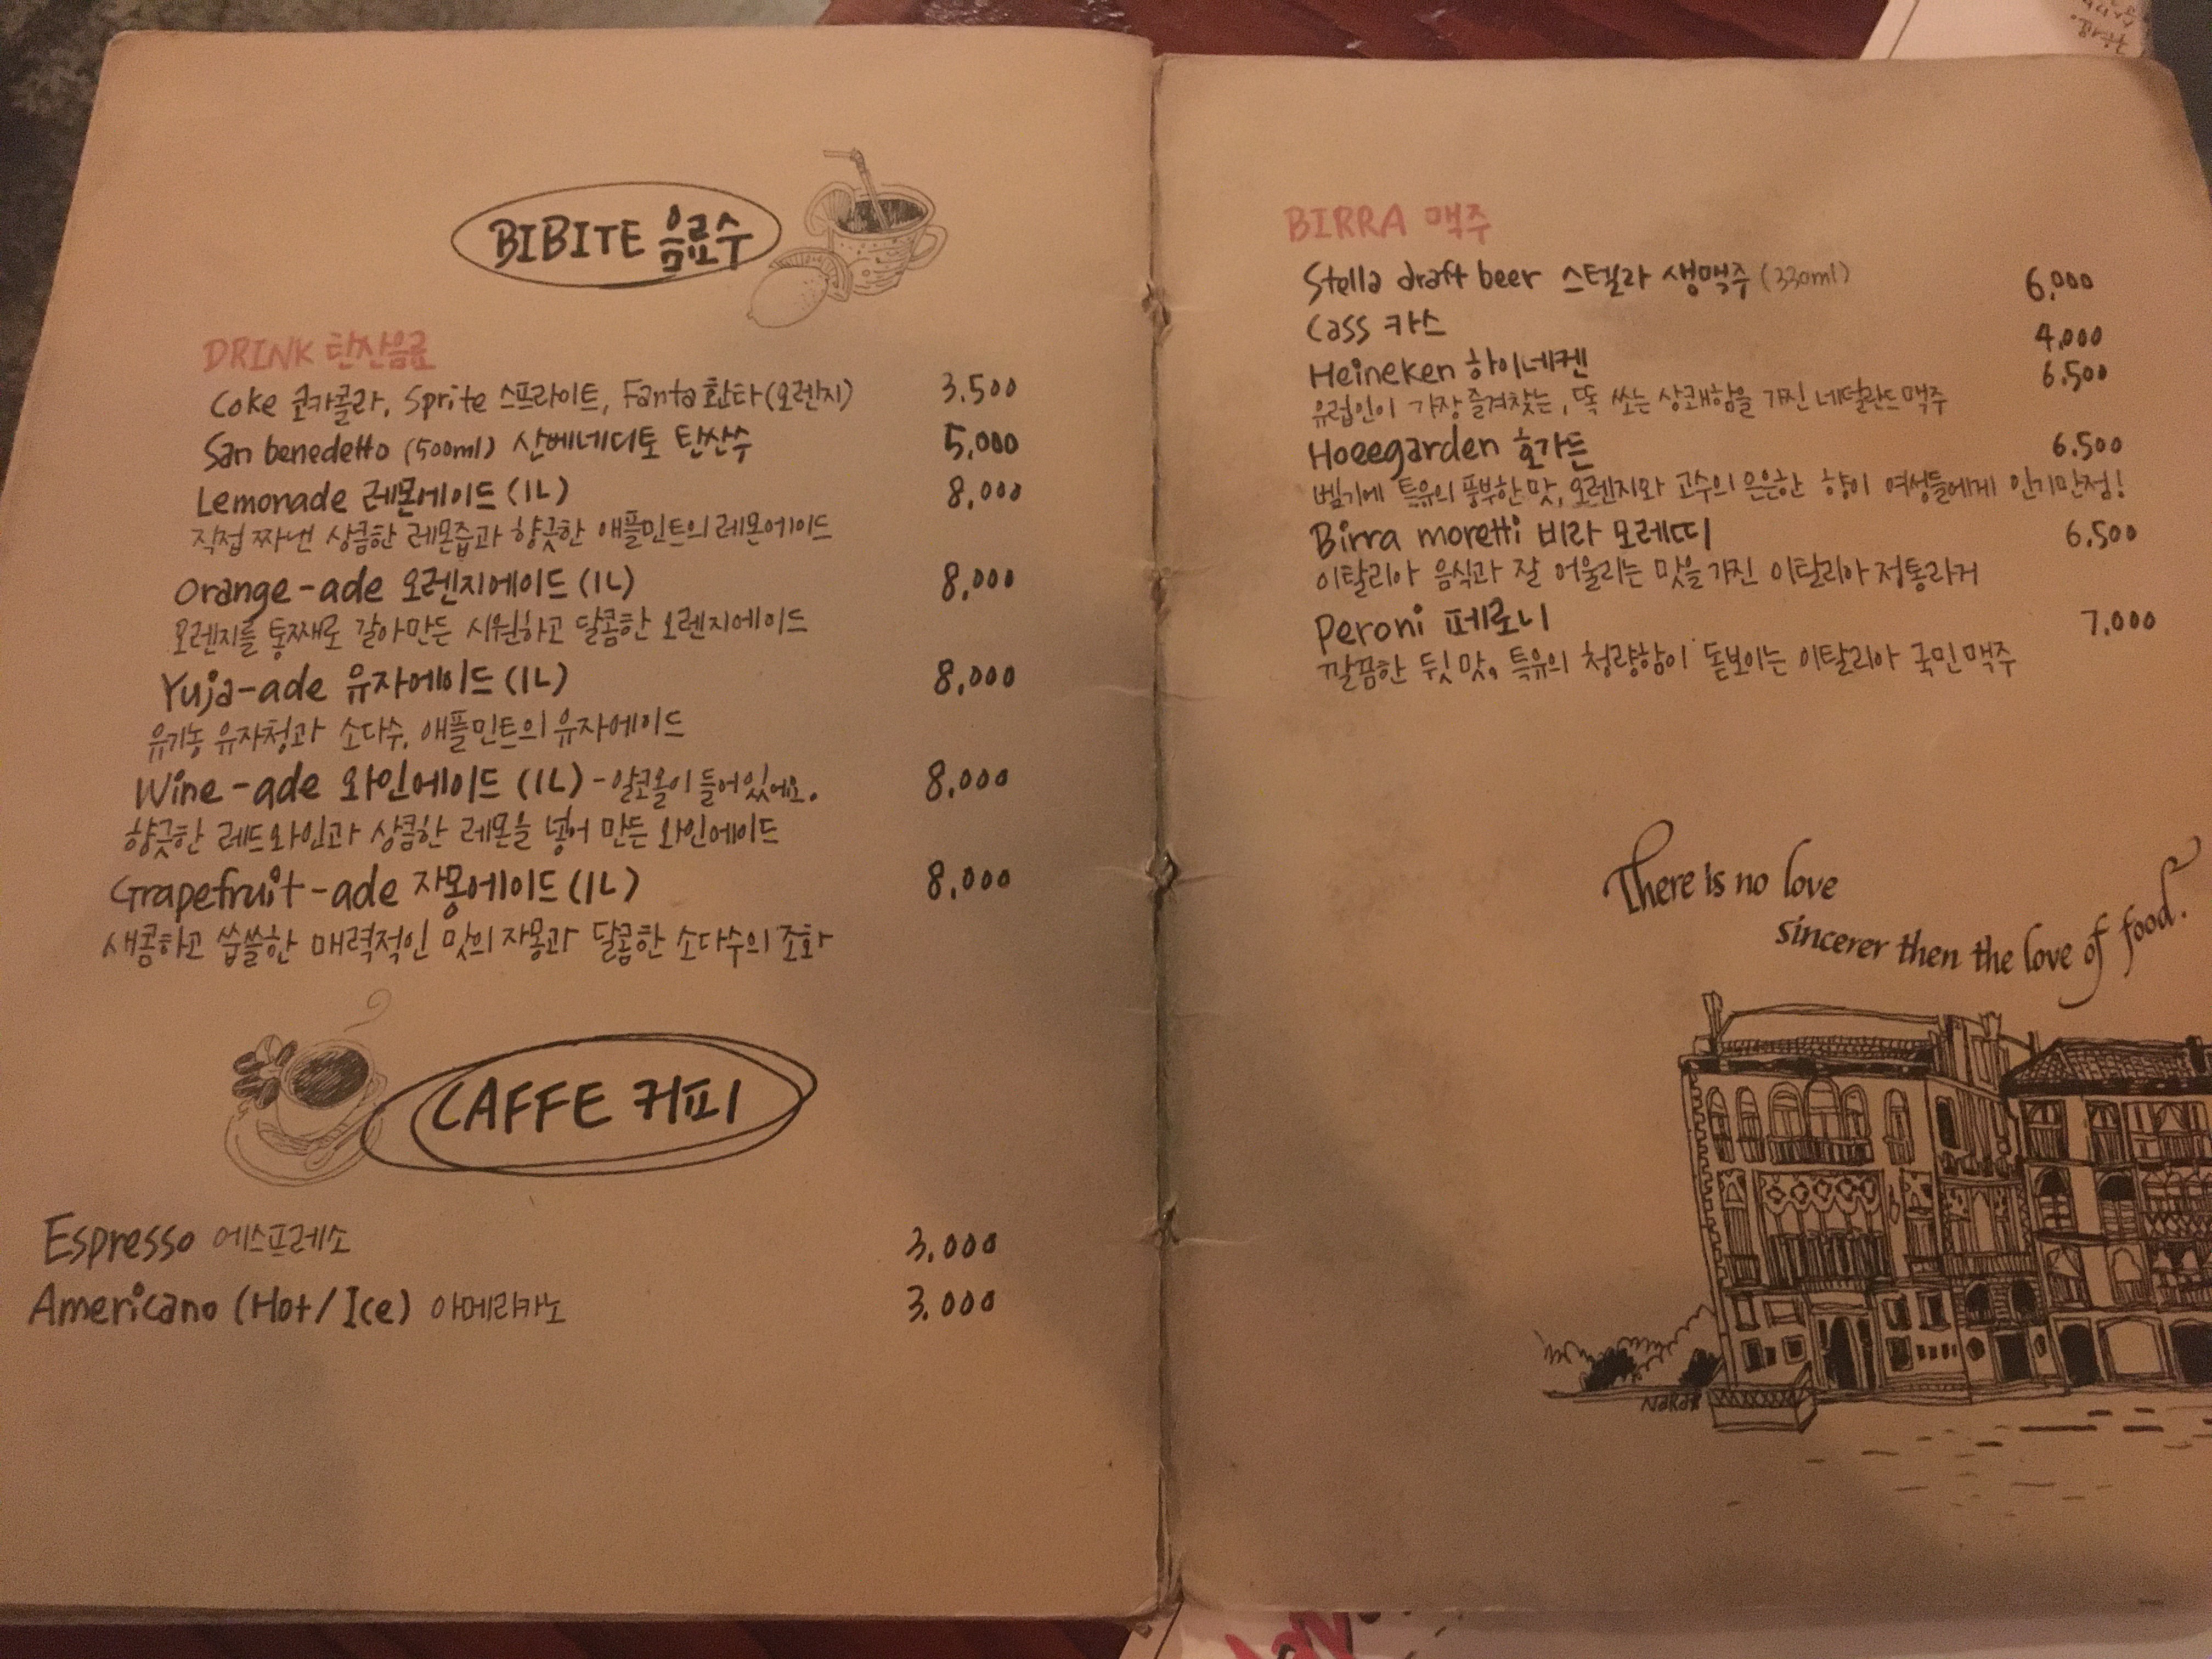 BIBITE 음료수
DRINK 탄산음료
Coke 코카콜라, Sprite 스프라이트, Fanta 환타(오렌지) 3,500
San benedetto (500ml) 산베네디토 탄산수 5,000
Lemonade 레몬에이드 (1L) 8,000
직접 짜낸 상큼한 레몬즙과 향긋한 애플민트의 레몬에이드
Orange-ade 오렌지에이드 (1L) 8,000
오렌지를 통째로 갈아만든 시원하고 달콤한 오렌지에이드
Yuja-ade 유자에이드 (1L) 8,000
유기농 유자청과 소다수, 애플민트의 유자에이드
Wine-ade 와인에이드 (1L) - 알코올이 들어있어요. 8,000
향긋한 레드와인과 상큼한 레몬을 넣어 만든 와인에이드
Grapefruit-ade 자몽에이드 (1L) 8,000
새콤하고 쌉쌀한 매력적인 맛의 자몽과 달콤한 소다수의 조화
CAFFE 커피
Espresso 에스프레소 3,000
Americano (Hot/Ice) 아메리카노 3,000
BIRRA 맥주
Stella draft beer 스텔라 생맥주 (330ml) 6,000
Cass 카스 4,000
Heineken 하이네켄 6,500
유럽인이 가장 즐겨찾는, 톡 쏘는 상쾌함을 가진 네덜란드 맥주
Hoeegarden 호가든 6,500
벨기에 특유의 풍부한 맛, 오렌지와 고수의 은은한 향이 여성들에게 인기만점!
Birra moretti 비라 모레띠 6,500
이탈리아 음식과 잘 어울리는 맛을 가진 이탈리아 정통라거
Peroni 페로니 7,000
깔끔한 뒷맛, 특유의 청량함이 돋보이는 이탈리아 국민맥주
There is no love
sincerer then the love of food.